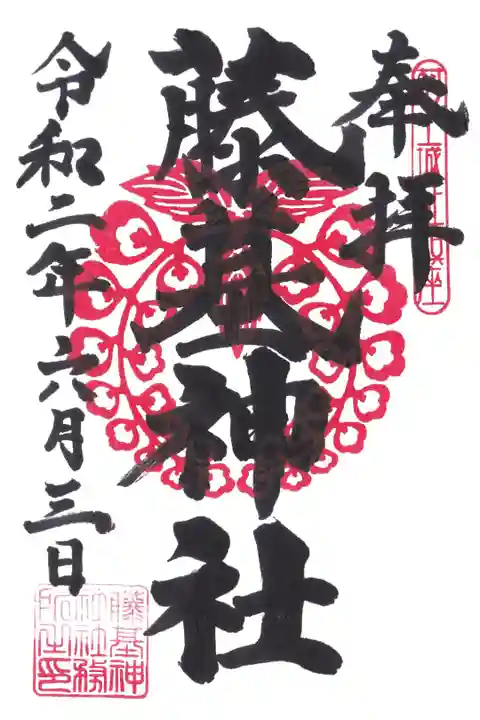 奉拝
藤基神社
令和二年六月三日
藤基神
社社務
所之印